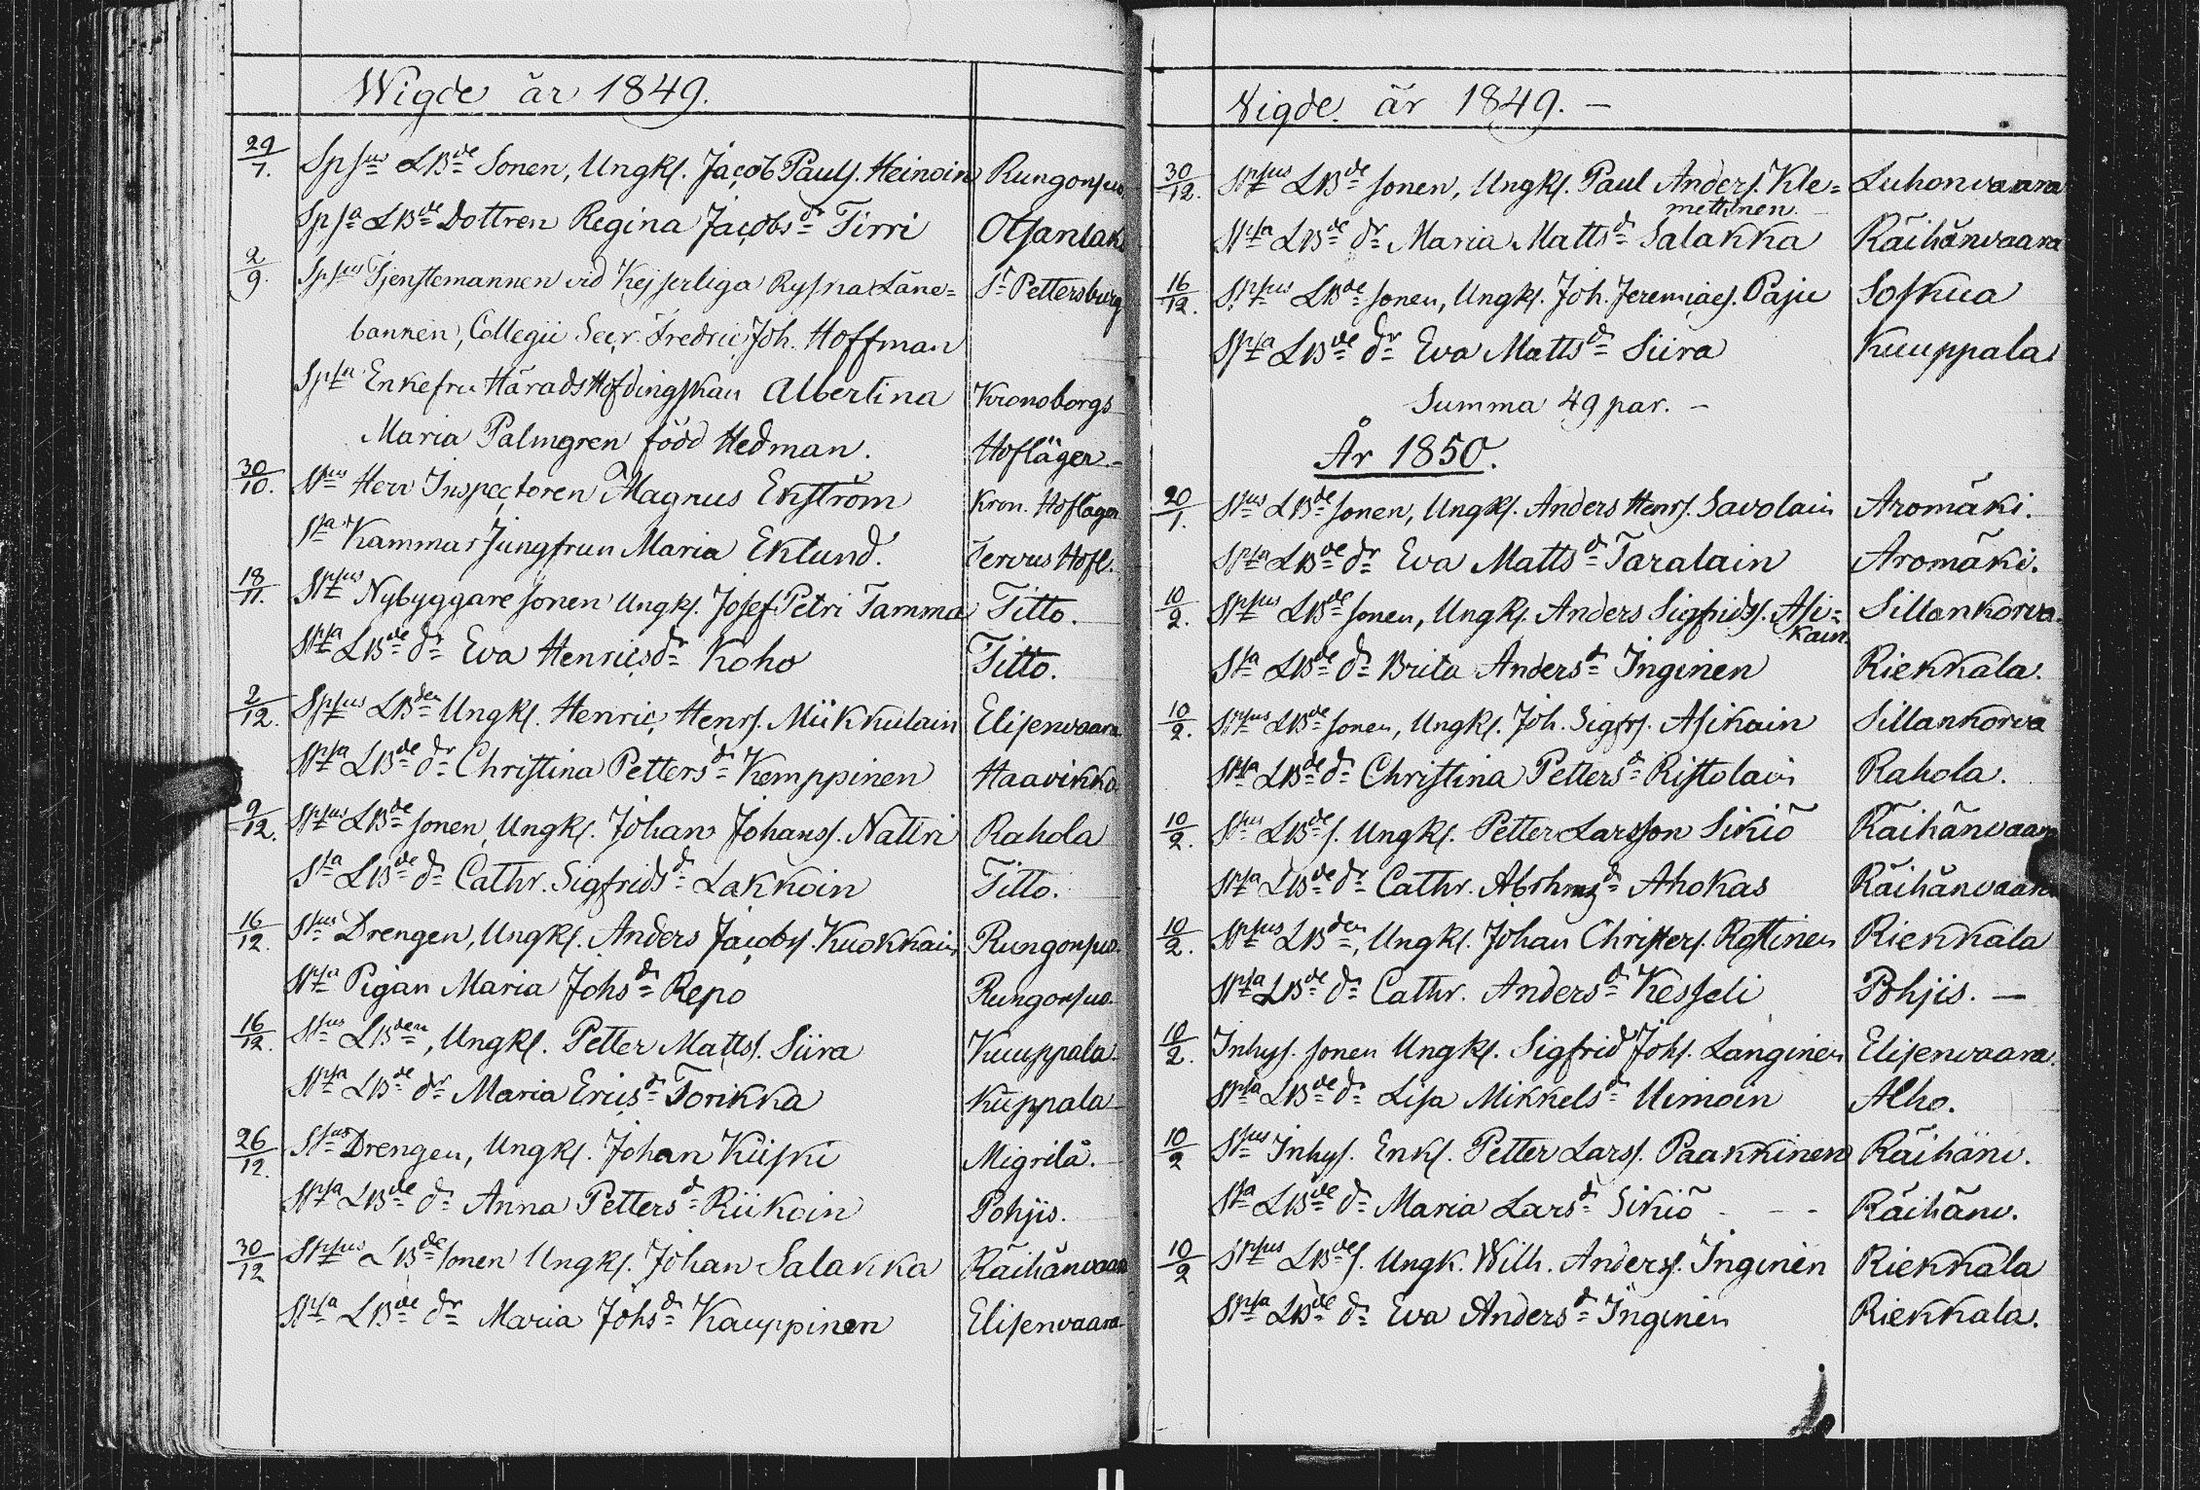 Wigde år 1849.
29/7. Spsus LBde Sonen, Ungkl. Jacob Pauls. Heinoin Rungonsuo
Spsa LBde Dottren Regina Jacobsdr Tirri Otsanlak
2/9. Spsus Tjenstemannen vid Kejserliga Ryska Låne= St Pettersburg
bannen, Collegii Secr. Fredric Joh. Hoffman
Spsa Enkefru Häradshöfdingskan Albertina Kronoborgs
Maria Palmgren född Hedman. Hofläger.
30/10. Spsus Herr Inspectoren Magnus Enström Kron. Hofläger
Spsa Kammar Jungfrun Maria Eklund. Tervus Hofl.
18/11. Spsus Nybyggare sonen Ungkl. Josef Petri Tamma Titto.
Spsa LBde dr Eva Henricsdr Koho Titto.
2/12. Spsus LBden Ungkl. Henric Henrs. Miikkulain Elisenvaara
Spsa LBde dr Christina Pettersdr Kemppinen Haavikko
9/12. Spsus LBde sonen, Ungkl. Johan Johans. Nattri Rahola
Spsa LBde dr Cathr. Sigfridsdr Lakkoin Titto.
16/12. Spsus Drengen, Ungkl. Anders Jacobs. Kuokkain Rungonsuo.
Spsa Pigan Maria Johsdr Repo Rungonsuo.
16/12. Spsus LBden, Ungkl. Petter Matts. Siira Kuuppala
Spsa LBde dr Maria Ericsdr Torikka Kuppala
26/12. Spsus Drengen, Ungkl. Johan Kiiski Migrilä.
Spsa LBde dr Anna Pettersdr Riikoin Pohjis.
30/12 Spsus LBde sonen Ungkl. Johan Salakka Räihänvaara
Spsa LBde dr Maria Johsdr Kauppinen Elisenvaara
Vigde år 1849. –
30/12. Spsus LBde sonen, Ungkl. Paul Anders. Kle= Luhonvaara
mettinen.
Spsa LBde dr Maria Mattsdr Salakka Räihänvaara
16/12. Spsus LBde sonen, Ungkl. Joh. Jeremiaes. Paju Soskua
Spsa LBde dr Eva Mattsdr Siira Kuuppala
Summa 49 par. –
År 1850.
20/1. Spsus LBde sonen, Ungkl. Anders Henrs. Savolain Aromäki.
Spsa LBde dr Eva Mattsdr Taralain Aromäki.
10/2. Spsus LBde sonen, Ungkl. Anders Sigfrids. Asi= Sillankorva.
kain.
Spsa LBde dr Brita Andersdr Inginen Riekkala.
10/2. Spsus LBde sonen, Ungkl. Joh. Sigfrs. Asikain Sillankorva
Spsa LBde dr Christina Pettersdr Ristolain Rahola.
10/2. Spsus LBde s. Ungkl. Petter Larsson Sikiö Räihänvaara
Spsa LBde dr Cathr. Abrhmsdr Ahokas Räihänvaara
10/2. Spsus LBden, Ungkl. Johan Christers. Rottinen Riekkala
Spsa LBde dr Cathr. Andersdr Kesseli Pohjis. –
10/2. Inhys. sonen Ungkl. Sigfrid Johs. Langinen Elisenvaara.
Spsa LBde dr Lisa Mikkelsdr Uimoin Alho.
10/2 Spsus Inhys. Enkl. Petter Larss. Paakkinen Räihänv.
Spsa LBde dr Maria Larsdr Sikiö - - - Räihänv.
10/2 Spsus LBde s. Ungk. Wilh. Anderss. Inginen Riekkala
Spsa LBde dr Eva Andersdr Inginen Riekkala.